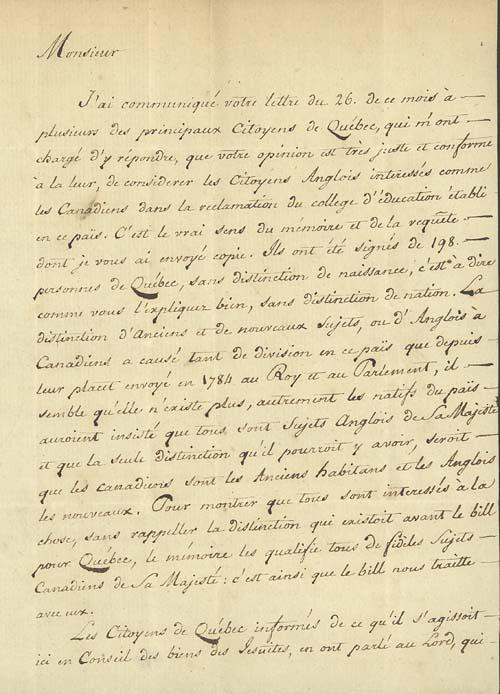 Monsieur
J'ai communiqué votre lettre du 26. de ce mois à —
plusieurs des principaux Citoyens de Québec, qui m'ont —
chargé d'y répondre, que votre opinion est très juste et conforme
à la leur, de considerer les Citoyens Anglois interessés comme
les Canadiens dans la reclamation du college d'éducation établi
en ce païs. C'est le vrai sens du mémoire et de la requête —
dont je vous ai envoyé copie. Ils ont été signés de 198. —
personnes de Québec, sans distinction de naissance, c'est à dire
comme vous l'expliquez bien, sans distinction de nation. La
distinction d'Anciens et de nouveaux Sujets, ou d'Anglois à
Canadiens a causé tant de division en ce païs que depuis
leur placet envoyé en 1784 au Roy et au Parlement, il —
semble qu'elle n'existe plus, autrement les natifs du païs —
auroient insisté que tous sont Sujets Anglois de Sa Majesté
et que la seule distinction qu'il pourroit y avoir, seroit —
que les canadiens sont les Anciens habitans et les Anglois
les nouveaux. Pour montrer que tous sont interessés à la
chose, sans rappeller la distinction qui existoit avant le bill
pour Québec, le mémoire les qualifie tous de fidiles Sujets —
Canadiens de Sa Majesté : c'est ainsi que le bill nous traitte —
avec eux.
Les Citoyens de Québec informés de ce qu'il s'agissoit —
ici en Conseil des biens des Jesuites, en ont parlé au Lord, qui —